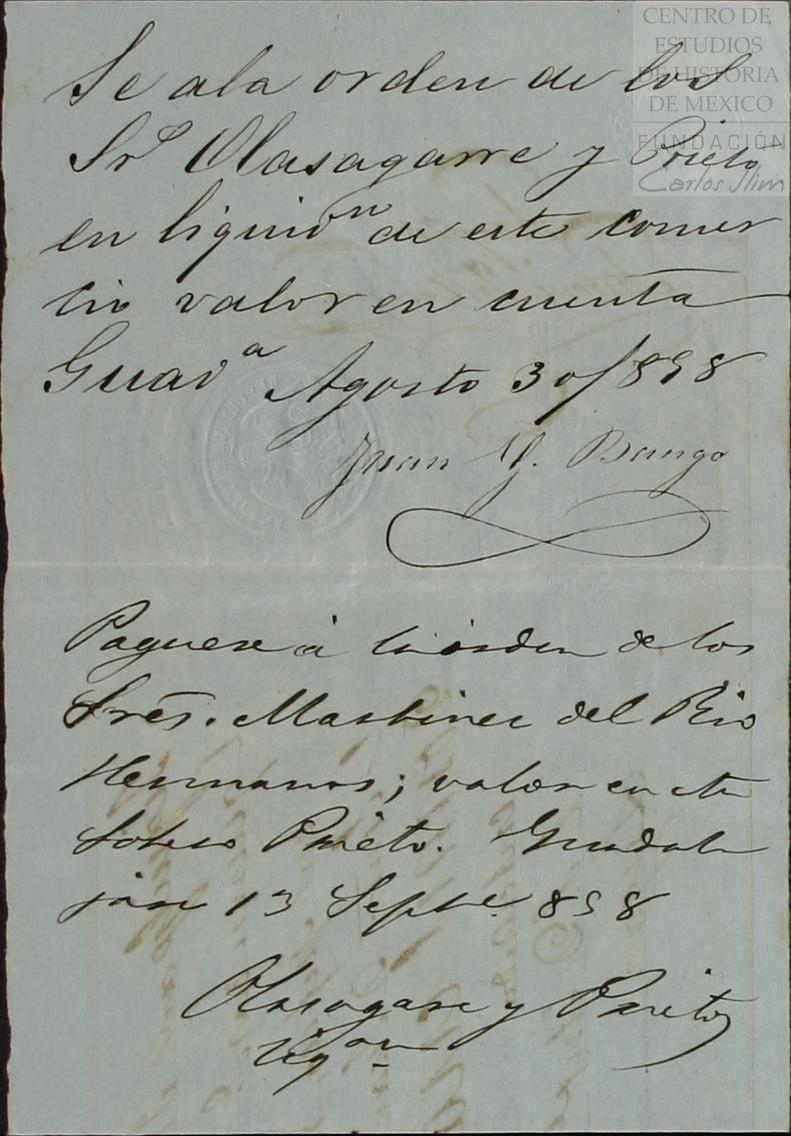 CENTRO DE
ESTUDIOS
DE HISTORIA
DE MEXICO
FUNDACIÓN
Carlos Slim
Se ala orden de los
Srs Olasagarre y Prieto
en liquidn de este comer
cio valor en cuenta
Guada Agosto 30/858
Juan Y. Bango
Paguese á la órden de los
Sres. Martinez del Rio
Hermanos; valor en cta
Sotero Prieto. Guadala
jara 13 Septe. 858
Olasagarre y Prieto
liqon